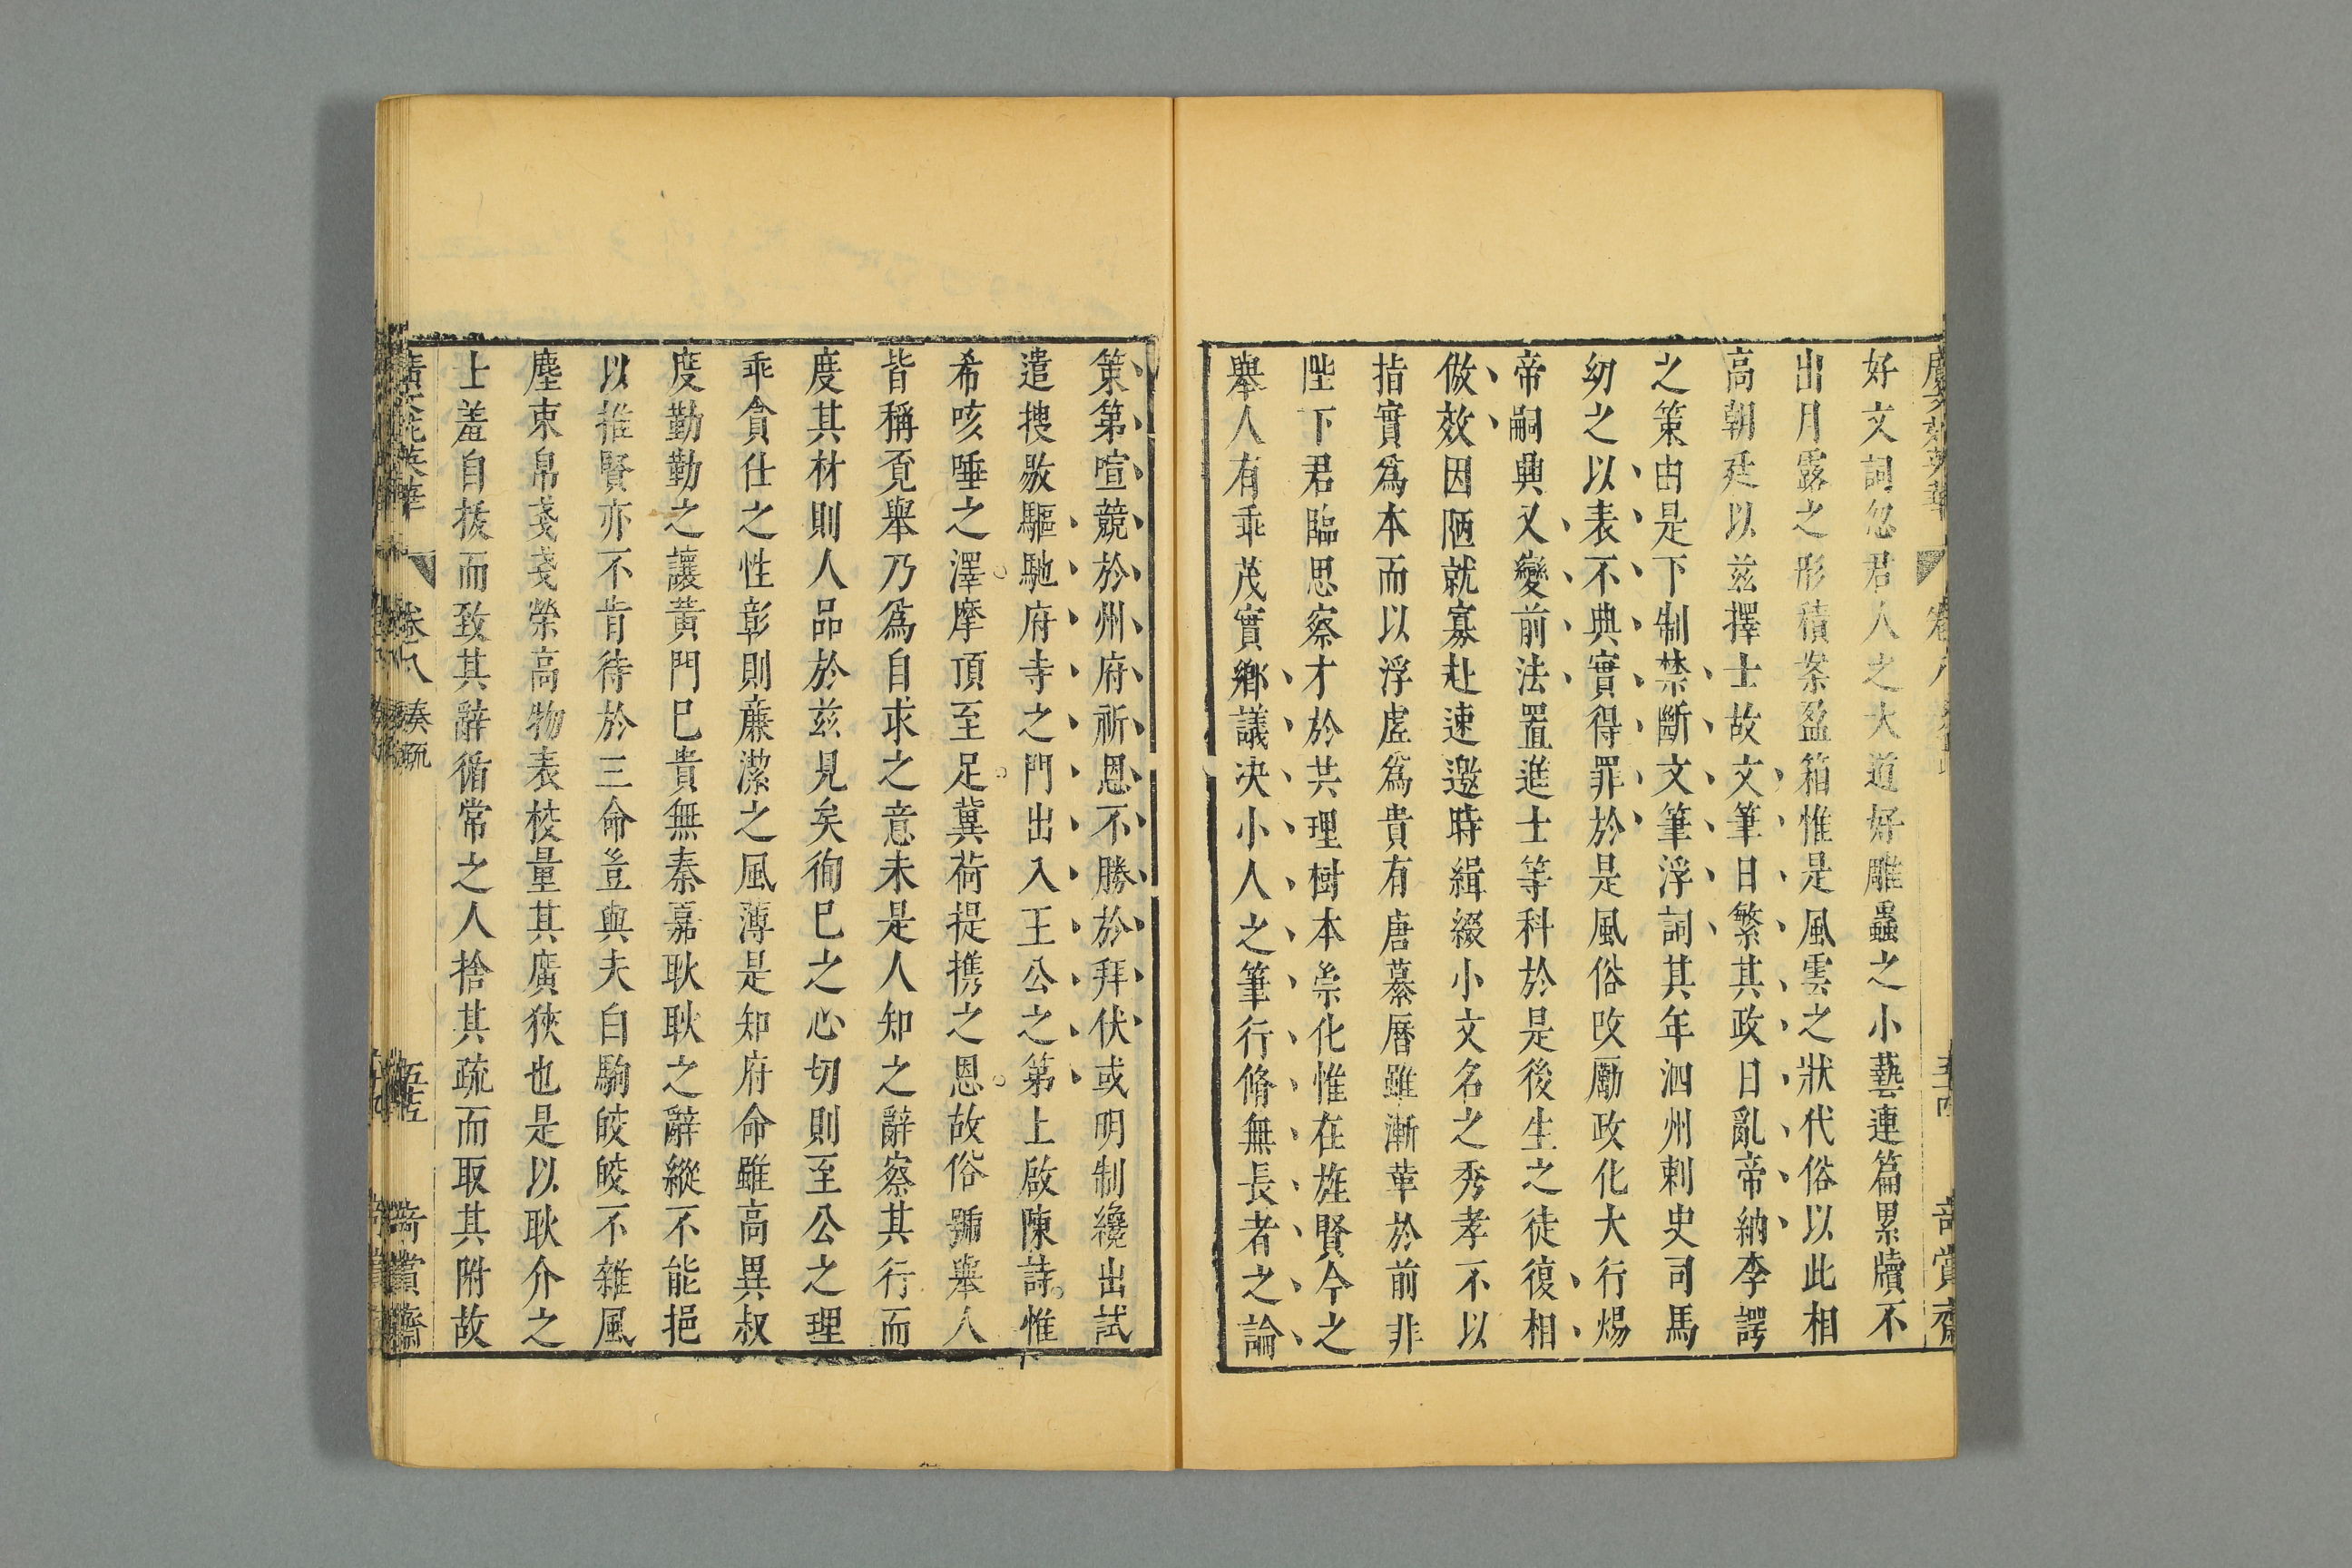 好文詞忽君人之大道好雕蟲之小藝連篇累牘不
出月露之形積案盈箱惟是風雲之狀代俗以此相
高朝廷以兹擇士故文筆日繁其政日亂帝納李諤
之策由是下制禁斷文筆浮詞其年泗州剌史司馬
幼之以表不典實得罪於是風俗改勵政化大行煬
帝嗣興又變前法置進士等科於是後生之徒復相
倣效因陋就寡赴速邀時緝綴小文名之秀孝不以
指實爲本而以浮虛爲貴有唐纂曆雖漸革於前非
陛下君臨思察才於共理樹本崇化惟在旌賢今之
舉人有乖茂實鄉議決小人之筆行脩無長者之論
策第喧競於州府祈恩不勝於拜伏或明制纔出試
遣搜敭驅馳府寺之門出入王公之第上啟陳詩惟
希咳唾之澤摩頂至足冀荷提携之恩故俗號舉人
皆稱覓舉乃爲自求之意未是人知之辭察其行而
度其材則人品於兹見矣徇巳之心切則至公之理
乖貪仕之性彰則廉潔之風薄是知府命雖高異叔
度勤勤之讓黃門巳貴無秦嘉耿耿之辭縱不能挹
以推賢亦不肯待於三命豈與夫白駒皎皎不雜風
塵束帛戔戔榮高物表校量其廣狹也是以耿介之
士羞自拔而致其辭循常之人捨其疏而取其附故
卷八 奏疏 五五 奇賞齋